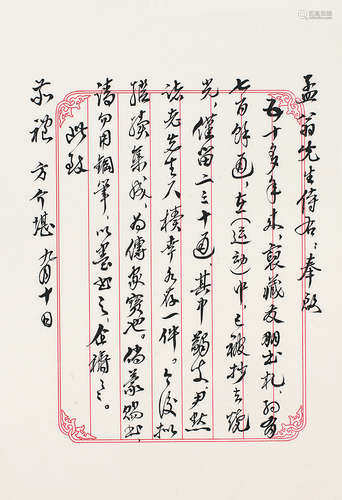 孟翁先生侍右：奉啟
五十多年来，裒藏友朋书札，约有
七百余通，在（运动）中，已被抄去烧
光，仅留二三十通，其中
诸老先生尺牍幸各存一件。今后拟
继续集成，为传家宝也。倘蒙赐书，
请勿用钢笔，以墨书之，企祷之。
此致
敬礼 方介堪 九月十日